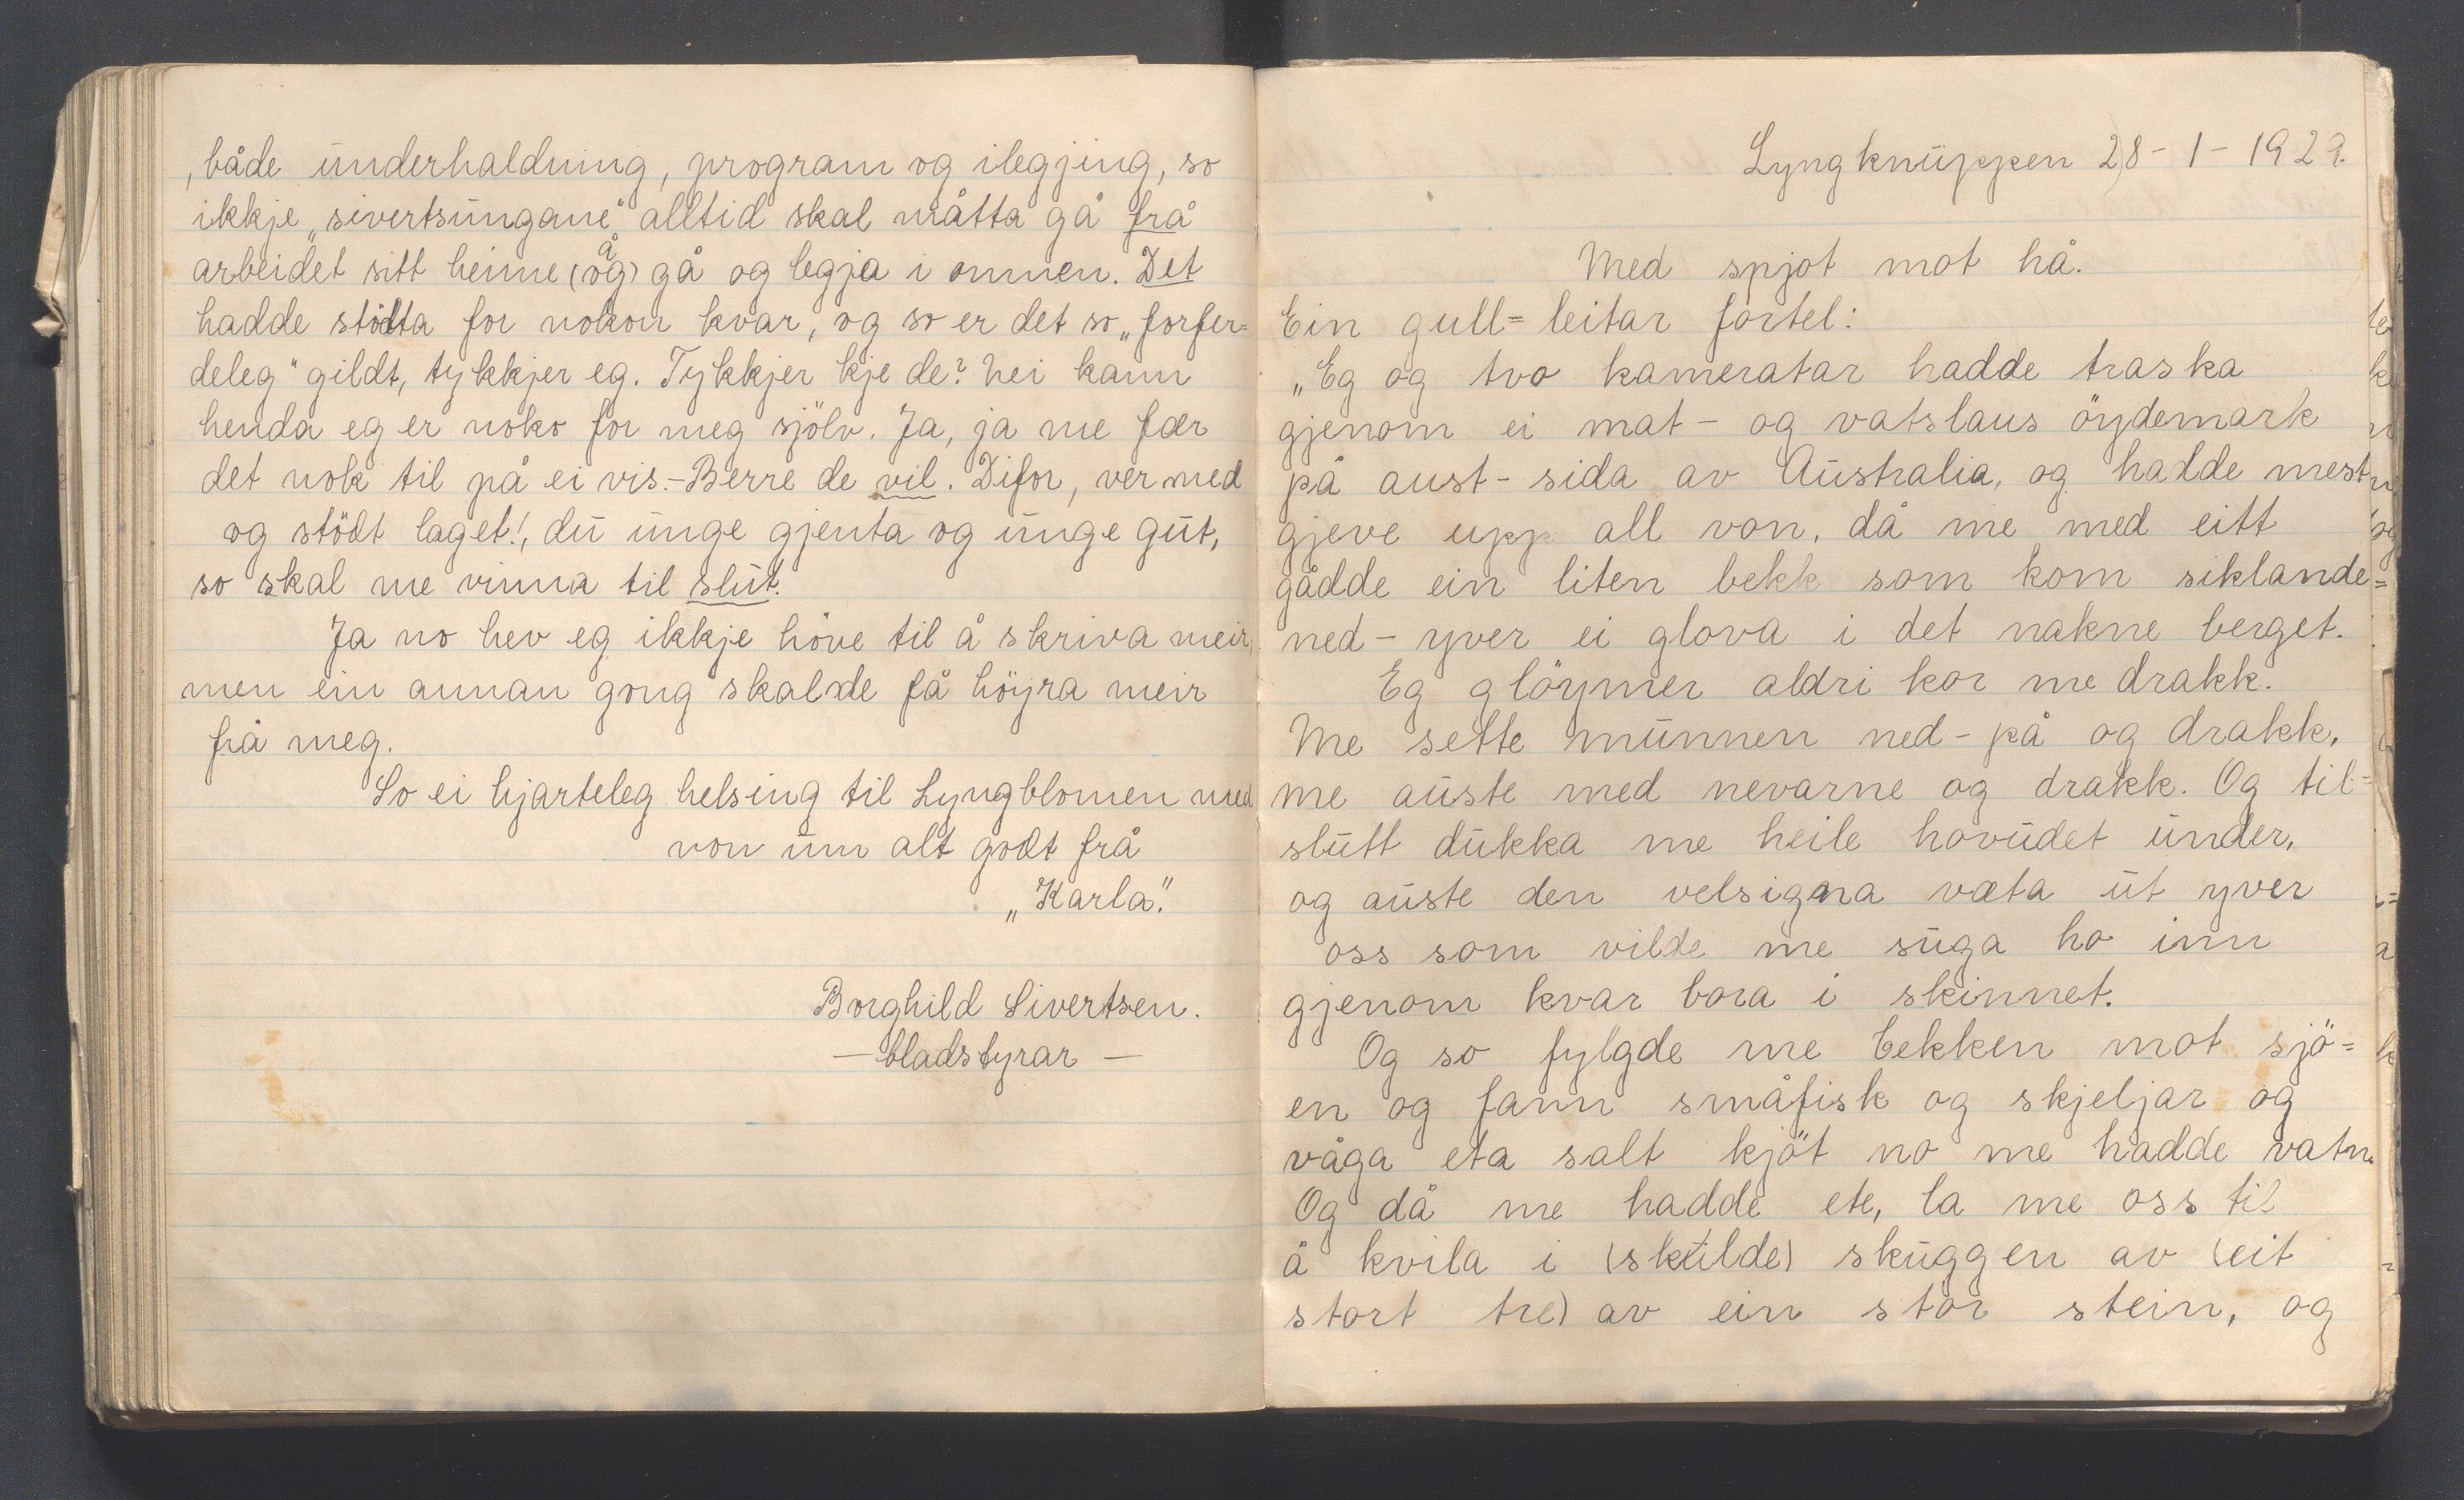 , både underhaldning, program og ilegjing, so
ikkje „sivertsungane" alltid skal måtta gå frå
arbeidet sitt heime (og) å gå og legja i omnen. Det
hadde stødtta for nokon kvar, og so er det so „forfer=
deleg" gildt, tykkjer eg. Tykkjer kje de? Nei kann
henda eg er noko for meg sjölv. Ja, ja me fær
det nok til på ei vis.- Berre de vil. Difor, ver med
og stödt laget!, du unge gjenta og unge gut,
so skal me vinna til slut.
Ja no hev eg ikkje höve til å skriva meir,
men ein annan gong skal de få höyra meir
frå meg.
So ei hjarteleg helsing til Lyngblomen med
von um alt godt frå
„Karla".
Borghild Sivertsen.
- bladstyrar -
Lyngknuppen 28 - 1 - 1929.
Med spjot mot hå.
Ein gull=leitar fortel:
„Eg og tvo kameratar hadde traska
gjenom ei mat- og vatslaus öydemark
på aust-sida av Australia, og hadde mest
gjeve upp all von, då me med eitt
gådde ein liten bekk som kom siklande=
ned-yver ei glova i det nakne berget.
Eg glöymer aldri kor me drakk.
Me sette munnen ned-på og drakk,
me auste med nevarne og drakk. Og til=
slutt dukka me heile hovudet under,
og auste den velsigna væta ut yver
oss som vilde me suga ho inn
gjenom kvar bora i skinnet.
Og so fylgde me bekken mot sjö=
en og fann småfisk og skjeljar og
våga eta salt kjöt no me hadde vatn.
Og då me hadde ete, la me oss til
å kvila i (skulde) skuggen av (eit
stort tre) av ein stor stein, og